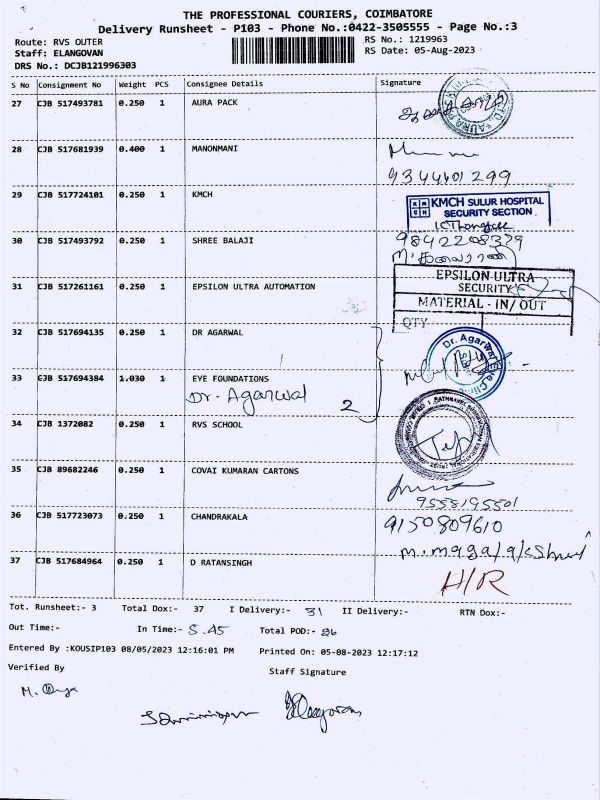 THE PROFESSIONAL COURIERS, COIMBATORE
Delivery Runsheet - P103 - Phone No.:0422-3505555 - Page No.:3
Route: RVS OUTER
RS No.: 1219963
Staff: ELANGOVAN
RS Date: 05-Aug-2023
DRS No.: DCJB121996303
S No Consignment No Weight PCS Consignee Details Signature
27 CJB 517493781 0.250 1 AURA PACK
28 CJB 517681939 0.400 1 MANONMANI
9344401299
29 CJB 517724101 0.250 1 KMCH
KMCH SULUR HOSPITAL
SECURITY SECTION.
30 CJB 517493792 0.250 1 SHREE BALAJI
9842208379
31 CJB 517261161 0.250 1 EPSILON ULTRA AUTOMATION
EPSILON ULTRA
SECURITY
MATERIAL - IN/OUT
QTY
32 CJB 517694135 0.250 1 DR AGARWAL
Dr. Agarwal
33 CJB 517694384 1.030 1 EYE FOUNDATIONS
Dr. Agarwal 2
34 CJB 1372082 0.250 1 RVS SCHOOL
35 CJB 89682246 0.250 1 COVAI KUMARAN CARTONS
9558195501
36 CJB 517723073 0.250 1 CHANDRAKALA
9150809610
37 CJB 517684964 0.250 1 D RATANSINGH
H/R
Tot. Runsheet:- 3 Total Dox:- 37 I Delivery:- 31 II Delivery:- RTN Dox:-
Out Time:- In Time:- 5.45 Total POD:- 26
Entered By :KOUSIP103 08/05/2023 12:16:01 PM Printed On: 05-08-2023 12:17:12
Verified By
Staff Signature